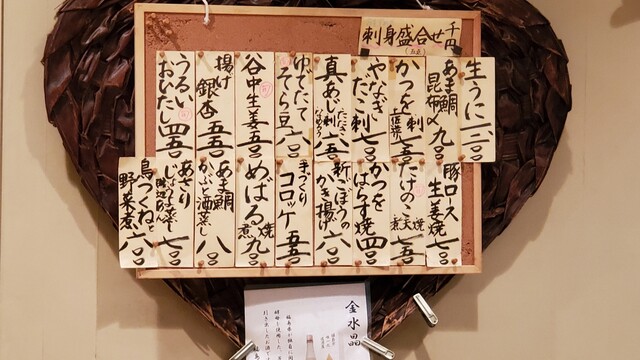 刺身盛合せ 千円
(五点)
生うに 一、二〇〇
あま鯛昆布〆 九〇〇
かつを刺 七五〇
やなぎだこ刺 七〇〇
真あじ刺 六五〇
たたき
なめろう
ゆでたてそら豆 六〇〇
谷中生姜 五五〇
揚げ銀杏 五五〇
うるいおひたし 四五〇
豚ロース生姜焼 七〇〇
たけのこ 天 焼 煮 七五〇
かつをはらす焼 四〇〇
新ごぼうのかき揚げ 六〇〇
手づくりコロッケ 五五〇
めばる 焼 煮 九〇〇
あま鯛かぶと酒蒸し 八〇〇
あさり 七〇〇
鳥つくねと野菜煮 六〇〇
金水晶